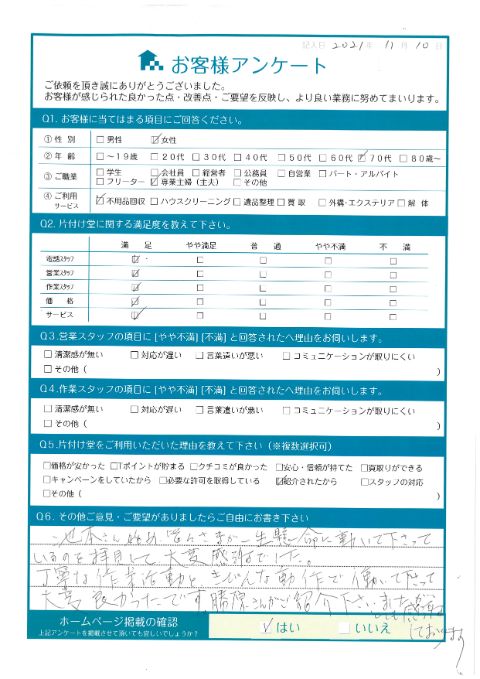 記入日 2021年 11月 10日
お客様アンケート
ご依頼を頂き誠にありがとうございました。
お客様が感じられた良かった点・改善点・ご要望を反映し、より良い業務に努めてまいります。
Q1. お客様に当てはまる項目にご回答ください。
① 性 別 □男性 ☑女性
② 年 齢 □～19歳 □20代 □30代 □40代 □50代 □60代 ☑70代 □80歳～
③ ご職業 □学生 □会社員 □経営者 □公務員 □自営業 □パート・アルバイト
□フリーター ☑専業主婦（主夫） □その他
④ ご利用サービス ☑不用品回収 □ハウスクリーニング □遺品整理 □買 取 □外構・エクステリア □解 体
Q2. 片付け堂に関する満足度を教えて下さい。
満 足 やや満足 普 通 やや不満 不 満
電話スタッフ ☑ □ □ □ □
営業スタッフ ☑ □ □ □ □
作業スタッフ ☑ □ □ □ □
価 格 ☑ □ □ □ □
サービス ☑ □ □ □ □
Q3.営業スタッフの項目に [やや不満] [不満] と回答されたへ理由をお伺いします。
□清潔感が無い □対応が遅い □言葉遣いが悪い □コミュニケーションが取りにくい
□その他（ ）
Q4.作業スタッフの項目に [やや不満] [不満] と回答されたへ理由をお伺いします。
□清潔感が無い □対応が遅い □言葉遣いが悪い □コミュニケーションが取りにくい
□その他（ ）
Q5.片付け堂をご利用いただいた理由を教えて下さい（※複数選択可）
□価格が安かった □Tポイントが貯まる □クチコミが良かった □安心・信頼が持てた □買取りができる
□キャンペーンをしていたから □必要な許可を取得している ☑紹介されたから □スタッフの対応
□その他（ ）
Q6. その他ご意見・ご要望がありましたらご自由にお書き下さい
池本さん始め皆さまが一生懸命に動いて下さって
いるのを拝見して大変感謝でした。
丁寧な作業活動ときびんな動作で働いて下って
大変良かったです。勝原さんがご紹介下さいました
とても感謝
しております
ホームページ掲載の確認
上記アンケートを掲載させて頂いても宜しいでしょうか？
☑はい □いいえ